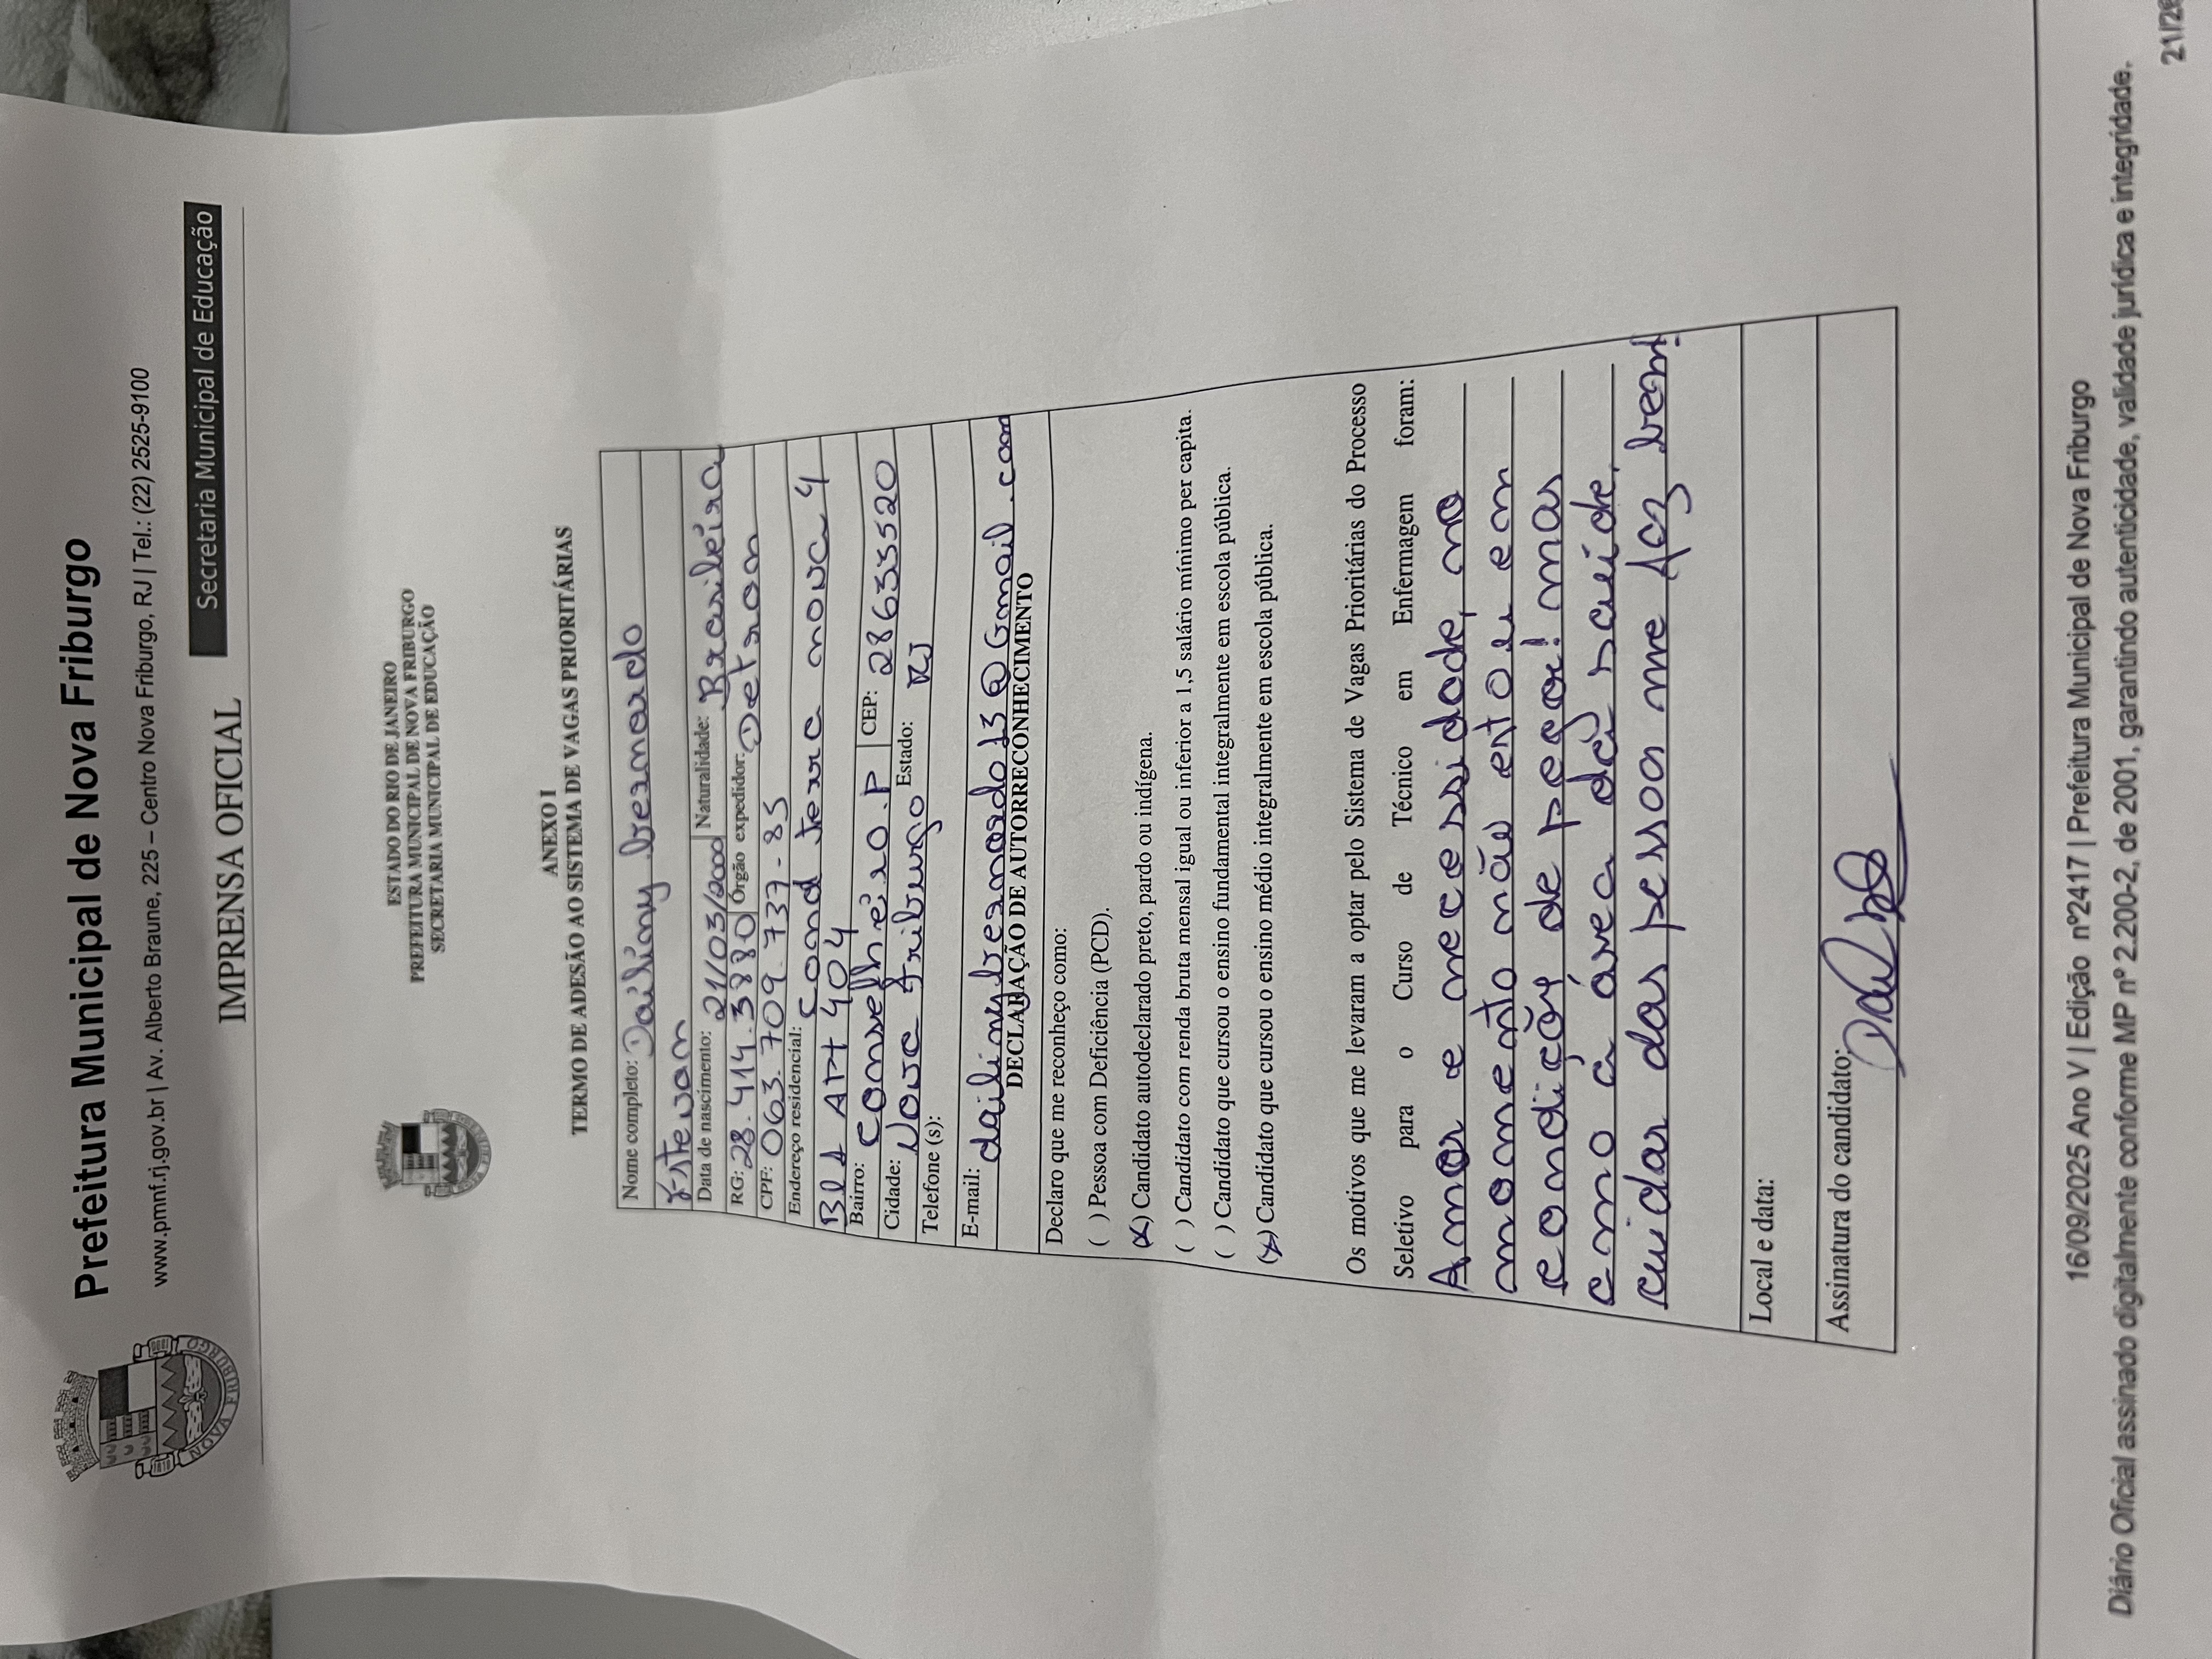 Prefeitura Municipal de Nova Friburgo
www.pmnf.rj.gov.br | Av. Alberto Braune, 225 – Centro Nova Friburgo, RJ | Tel.: (22) 2525-9100
Secretaria Municipal de Educação
IMPRENSA OFICIAL
NOVA FRIBURGO
ESTADO DO RIO DE JANEIRO
PREFEITURA MUNICIPAL DE NOVA FRIBURGO
SECRETARIA MUNICIPAL DE EDUCAÇÃO
ANEXO I
TERMO DE ADESÃO AO SISTEMA DE VAGAS PRIORITÁRIAS
Nome completo: Dailiny bernardo
Estevam
Data de nascimento: 21/03/2000 Naturalidade: Brasileira
RG: 28.414.3880 Órgão expedidor: Detran
CPF: 063.709.737-85
Endereço residencial: Cond terra nova 4
Bl1 APt 404
Bairro: Conselheiro.P CEP: 28633520
Cidade: Nova Friburgo Estado: RJ
Telefone (s):
E-mail: dailinybernardo13@Gmail.com
DECLARAÇÃO DE AUTORRECONHECIMENTO
Declaro que me reconheço como:
( ) Pessoa com Deficiência (PCD).
(X) Candidato autodeclarado preto, pardo ou indígena.
( ) Candidato com renda bruta mensal igual ou inferior a 1,5 salário mínimo per capita.
( ) Candidato que cursou o ensino fundamental integralmente em escola pública.
(X) Candidato que cursou o ensino médio integralmente em escola pública.
Os motivos que me levaram a optar pelo Sistema de Vagas Prioritárias do Processo
Seletivo para o Curso de Técnico em Enfermagem foram:
Amor e necessidade, no
momento não estou em
condição de pagar! mas
amo a área da saúde,
cuidar das pessoa me faz bem!
Local e data:
Assinatura do candidato:
16/09/2025 Ano V | Edição nº2417 | Prefeitura Municipal de Nova Friburgo
Diário Oficial assinado digitalmente conforme MP nº 2.200-2, de 2001, garantindo autenticidade, validade jurídica e integridade.